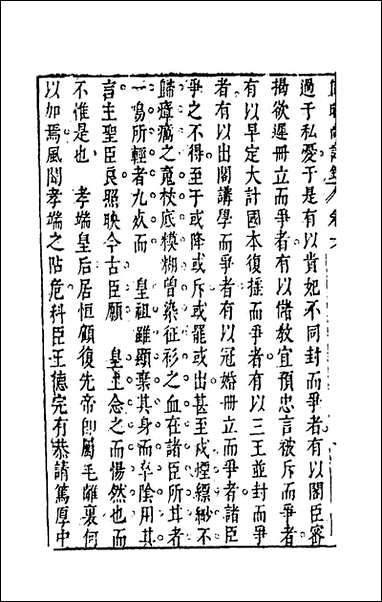 過于私愛于是有以貴妃不同封而爭者有以閣臣密
揭欲遲冊立而爭者有以儲教宜預忠言被斥而爭者
有以早定大計國本復搖而爭者有以三王並封而爭
者有以出閣講學而爭者有以冠婚冊立而爭者諸臣
爭之不得至于或降或斥或罷或出甚至戍煙縹緲不
歸瘴癘之䰟杖底模糊曾染征衫之血在諸臣所耳者
一鳴所輕者九死而 皇祖雖顯棄其身而卒陰用其
言主聖臣良照映今古臣願 皇上念之而惕然也而
不惟是也 孝端皇后居恒顧復先帝卽屬毛離裏何
以如焉風聞孝端之阽危科臣王德完有恭請篤厚中